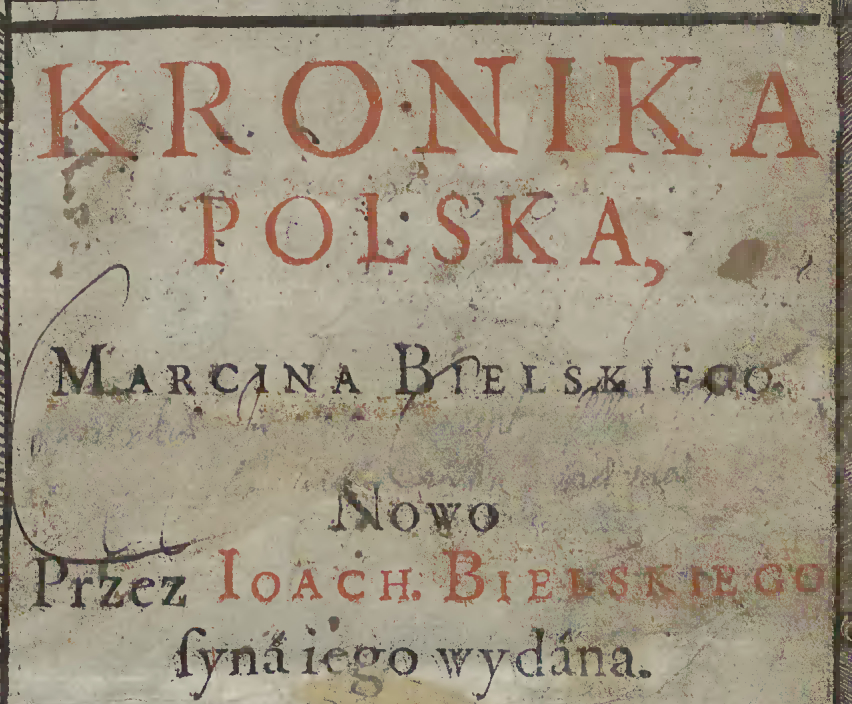 KRONIKA
POLSKA,
MARCINA BIELSKIEGO.
Nowo
Przez IOACH. BIELSKIEGO
ſyná iego wydána.